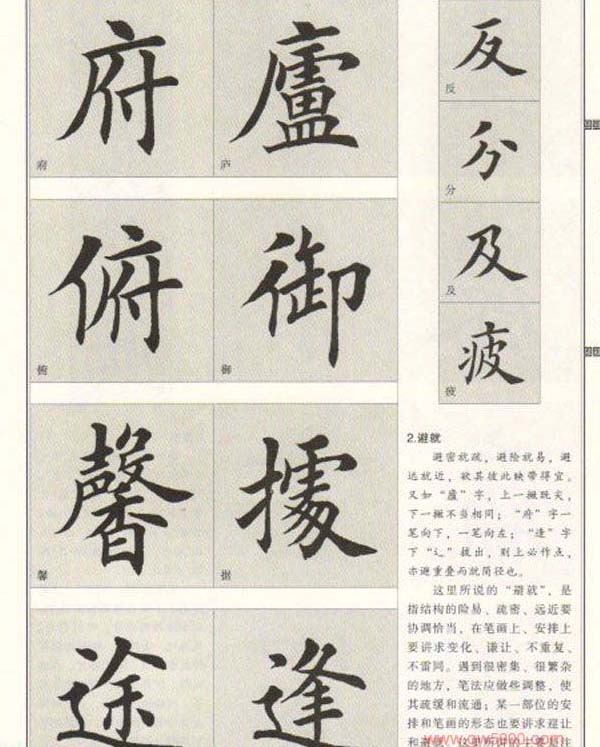 府 廬
府 庐
俯 御
俯 御
馨 據
馨 据
途 逢
反
反
分
分
及
及
疲
疲
2.避就
避密就疏，避险就易，避
远就近，欲其彼此映带得宜。
又如“廬”字，上一撇既尖，
下一撇不当相同；“府”字一
笔向下，一笔向左；“逢”字
下“辶”拔出，则上必作点，
亦避重叠而就简径也。
这里所说的“避就”，是
指结构的险易、疏密、远近要
协调恰当，在笔画上、安排上
要讲求变化、谦让、不重复、
不雷同。遇到很密集、很繁杂
的地方，笔法应做些调整，使
其疏缓和流通；某一部位的安
排和笔画的形态也要讲求迎让